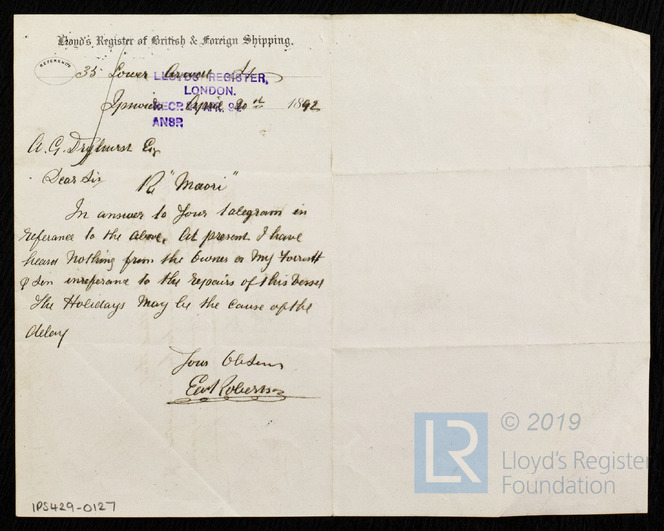 Lloyd's Register of British & Foreign Shipping.
REFERENCE
35 Lower Orwell St
LLOYD'S REGISTER,
LONDON.
Ipswich April 20th 1892
RECD. APR. 92
ANSR
A.G. Dryhurst Esq
Dear Sir Re "Maori"
In answer to Your telegram in
referance to the above, At present I have
heard Nothing from the Owner or My
& Son inreferance to the repairs of this Vessel
The Holidays May be the Cause of the
delay
Yours Obt Serv
Robertson
IPS429-0127
LR
© 2019
Lloyd's Register
Foundation